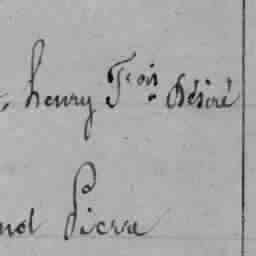 henry Fcois Désiré
Pierre